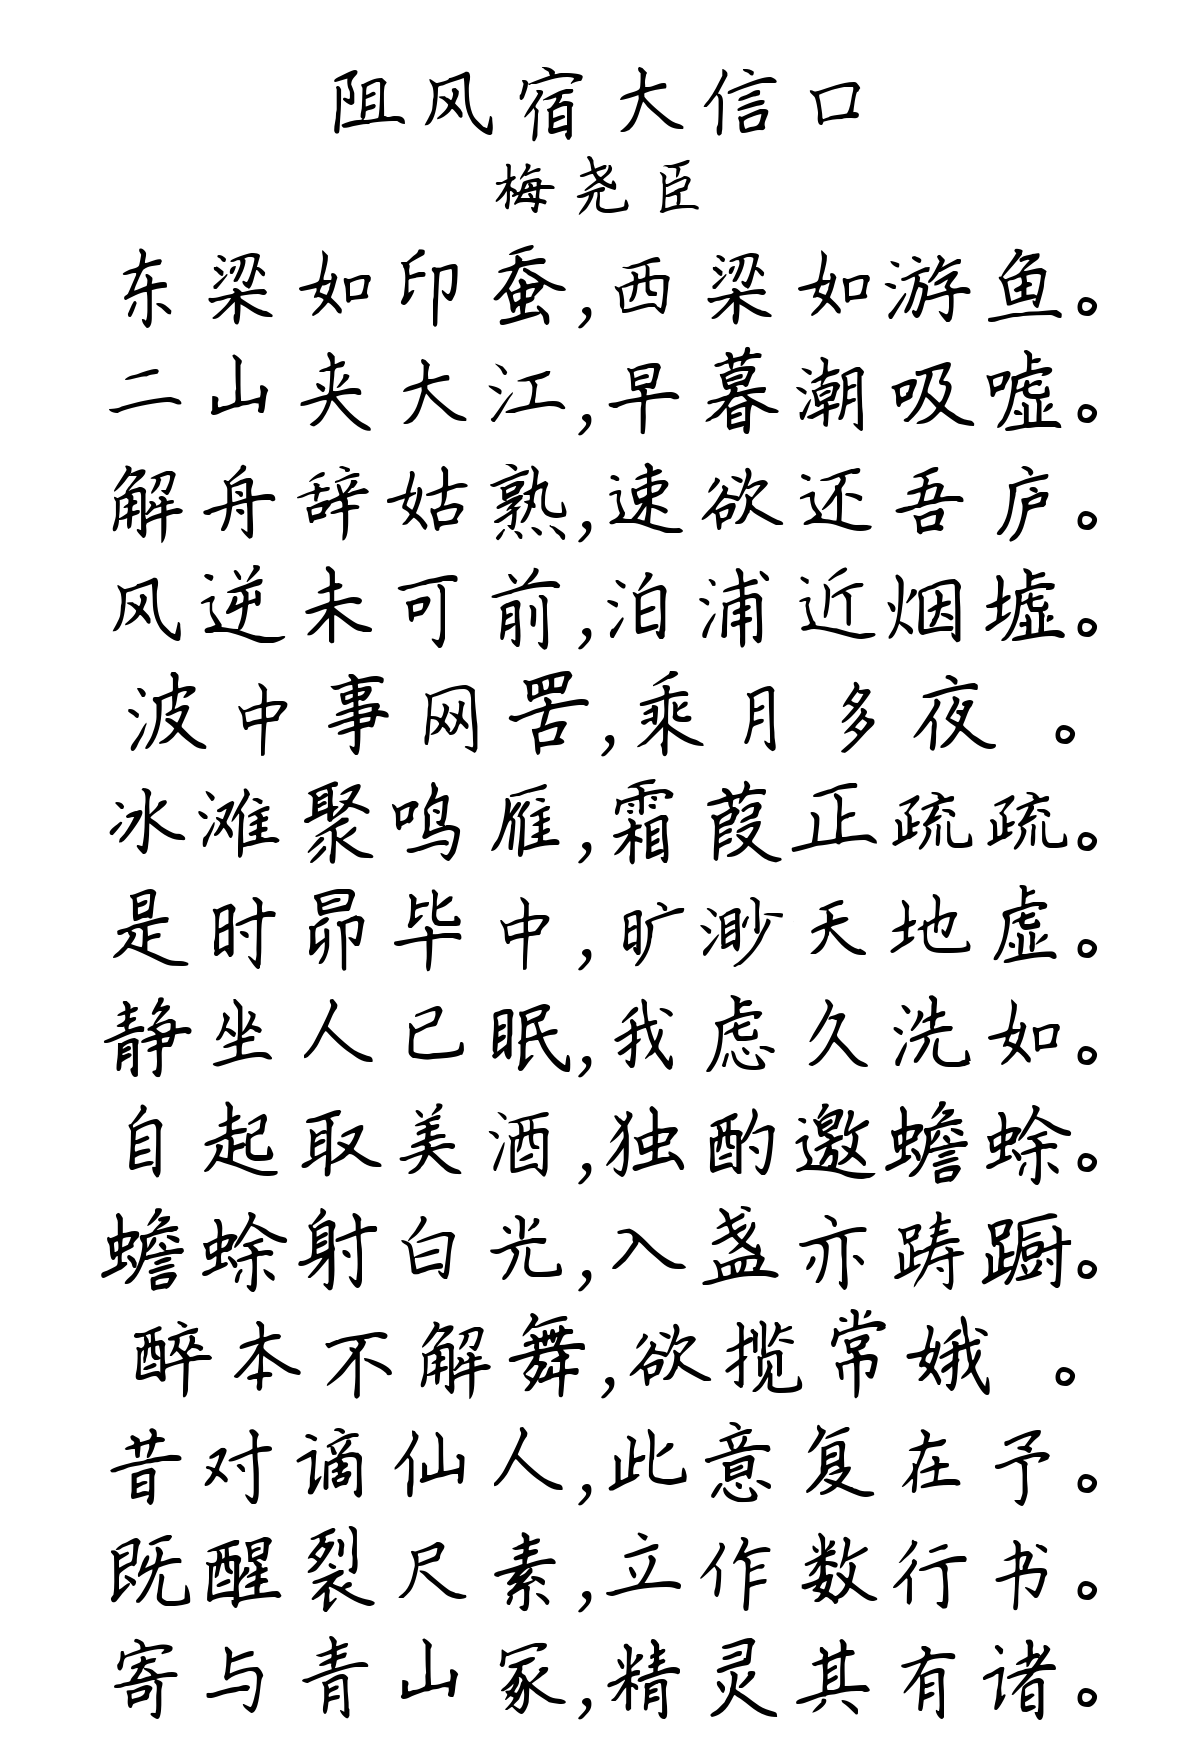 阻风宿大信口
梅尧臣
东梁如印蚕,西梁如游鱼。
二山夹大江,早暮潮吸嘘。
解舟辞姑熟,速欲还吾庐。
风逆未可前,泊浦近烟墟。
波中事网罟,乘月多夜 。
冰滩聚鸣雁,霜葭正疏疏。
是时昴毕中,旷渺天地虚。
静坐人已眠,我虑久洗如。
自起取美酒,独酌邀蟾蜍。
蟾蜍射白光,入盏亦踌蹰。
醉本不解舞,欲揽常娥 。
昔对谪仙人,此意复在予。
既醒裂尺素,立作数行书。
寄与青山冢,精灵其有诸。